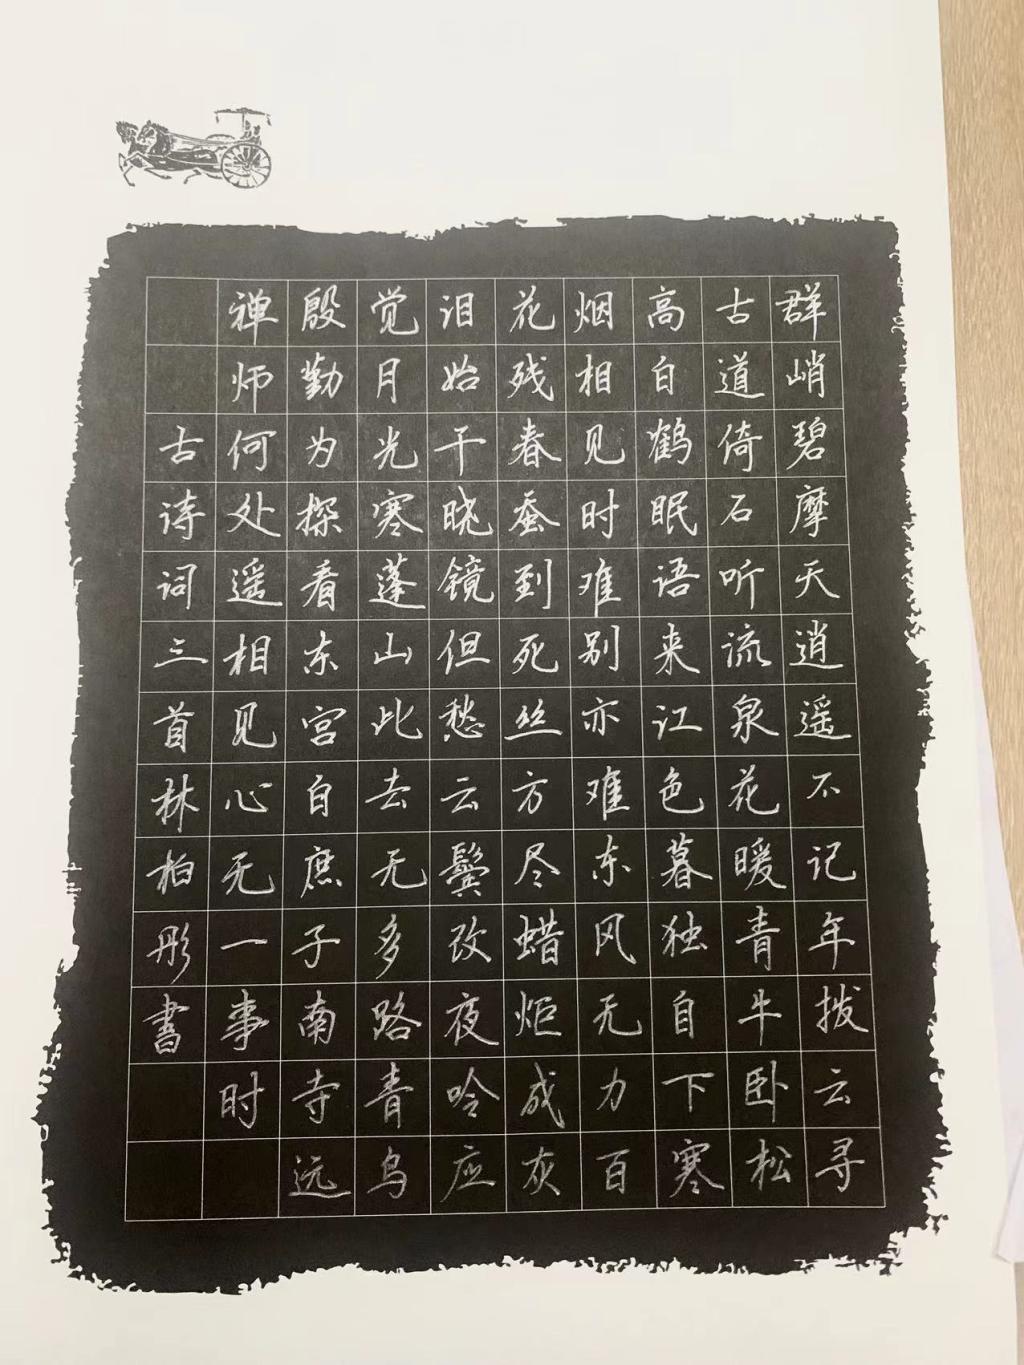 群峭碧摩天逍遥不记年拨云寻
古道倚石听流泉花暖青牛卧松
高白鹤眠语来江色暮独自下寒
烟相见时难别亦难东风无力百
花残春蚕到死丝方尽蜡炬成灰
泪始干晓镜但愁云鬓改夜吟应
觉月光寒蓬山此去无多路青鸟
殷勤为探看东宫白庶子南寺远
禅师何处遥相见心无一事时
古诗词三首林柏彤書